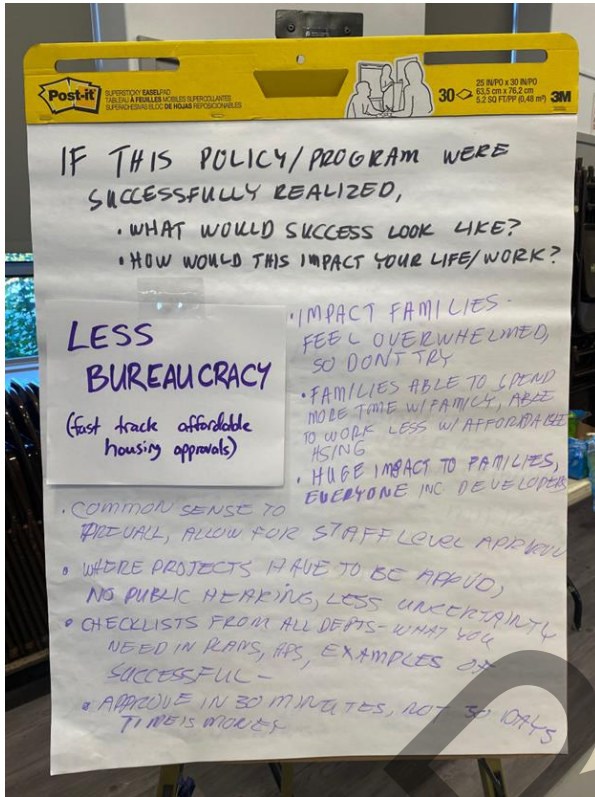 Post-it
SUPERSTICKY EASEL PAD
TABLEAU À FEUILLES MOBILES SUPERCOLLANTES
SUPERADHESIVAS BLOC DE HOJAS REPOSICIONABLES
30
25 IN/PO x 30 IN/PO
63,5 cm x 76,2 cm
5.2 SQ FT/PP (0,48 m²)
3M
IF THIS POLICY/PROGRAM WERE
SUCCESSFULLY REALIZED,
• WHAT WOULD SUCCESS LOOK LIKE?
• HOW WOULD THIS IMPACT YOUR LIFE/WORK?
LESS
BUREAUCRACY
(fast track affordable
housing approvals)
• IMPACT FAMILIES -
FEEL OVERWHELMED,
SO DONT TRY
• FAMILIES ABLE TO SPEND
MORE TIME W/FAMILY, ABLE
TO WORK LESS W/ AFFORDABLE
HSING
• HUGE IMPACT TO FAMILIES,
EVERYONE INC DEVELOPERS
• COMMON SENSE TO
PREVAIL, ALLOW FOR STAFF LEVEL APPROVAL
• WHERE PROJECTS HAVE TO BE APPVD,
NO PUBLIC HEARING, LESS UNCERTAINTY
• CHECKLISTS FROM ALL DEPTS - WHAT YOU
NEED IN PLANS, APS, EXAMPLES OF
SUCCESSFUL -
• APPROVE IN 30 MINUTES, NOT 30 DAYS
TIME IS MONEY